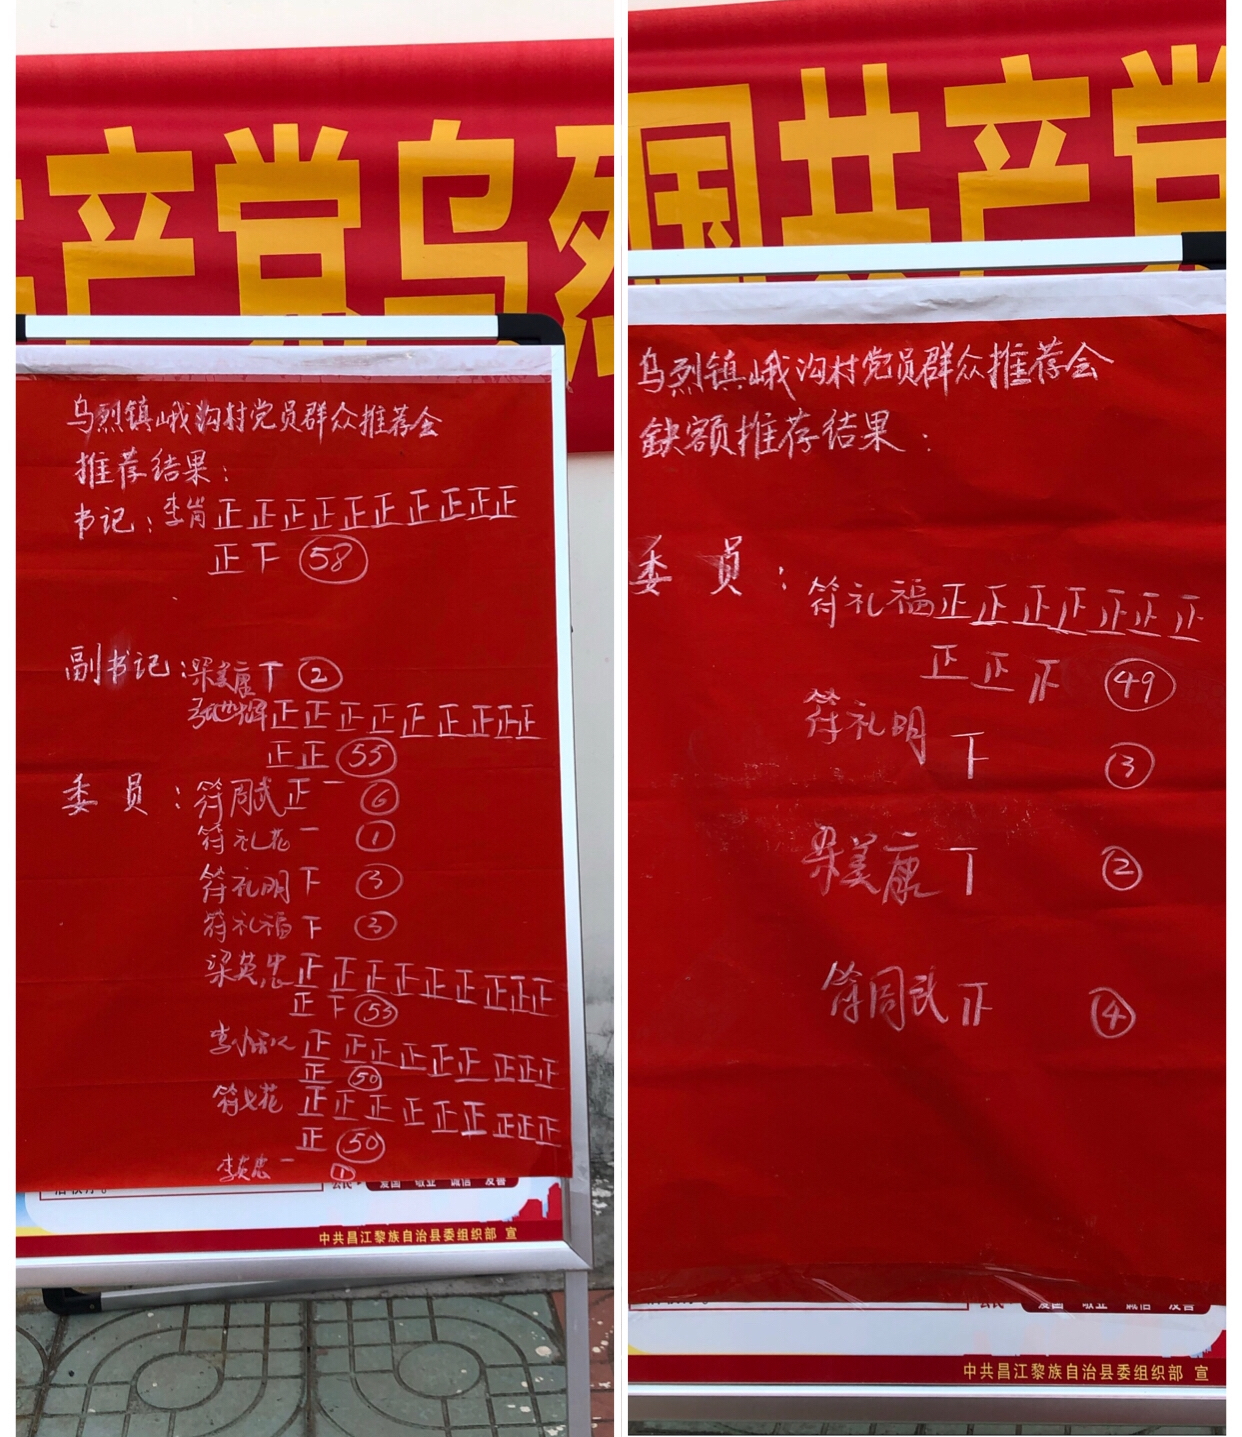 产党乌烈
乌烈镇峨沟村党员群众推荐会
推荐结果：
书记：李岗 正正正正正正正正正正
正下 58
副书记：梁美康 丅 2
正正正正正正正正正
正正 55
委员：符周武 正一 6
符礼花 一 1
符礼明 下 3
符礼福 下 3
梁英忠 正正正正正正正正正
正下 53
李 正正正正正正正正正
正 50
符 花 正正正正正正正正正
正 50
李英忠 一 1
爱国 敬业 诚信 友善
中共昌江黎族自治县委组织部 宣
国共产党
乌烈镇峨沟村党员群众推荐会
缺额推荐结果：
委员：符礼福 正正正正正正正
正正 49
符礼明 下 3
梁美康 丅 2
符周武 4
爱国 敬业 诚信 友善
中共昌江黎族自治县委组织部 宣